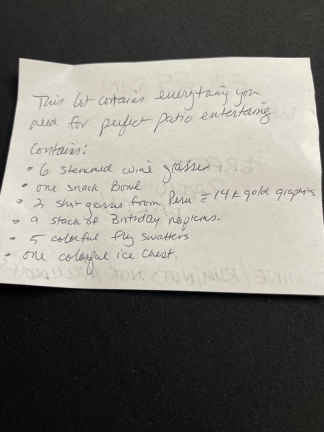 This lot contains everything you
need for perfect patio entertaining
Contains:
• 6 stemmed wine glasses
• one snack Bowl
• 2 shot glasses from Peru = 14k gold graphics
• a stack of Birthday napkins.
• 5 colorful fly swatters
• one colorful ice chest.